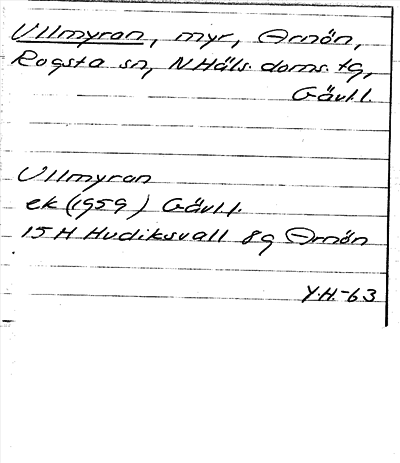 Ullmyran, myr, Arnön,
Rogsta sn, N.Häls. doms. tg,
Gävl.l.
Ullmyran
ek (1959) Gävl.l.
15H Hudiksvall 8g Arnön
Y.H.-63